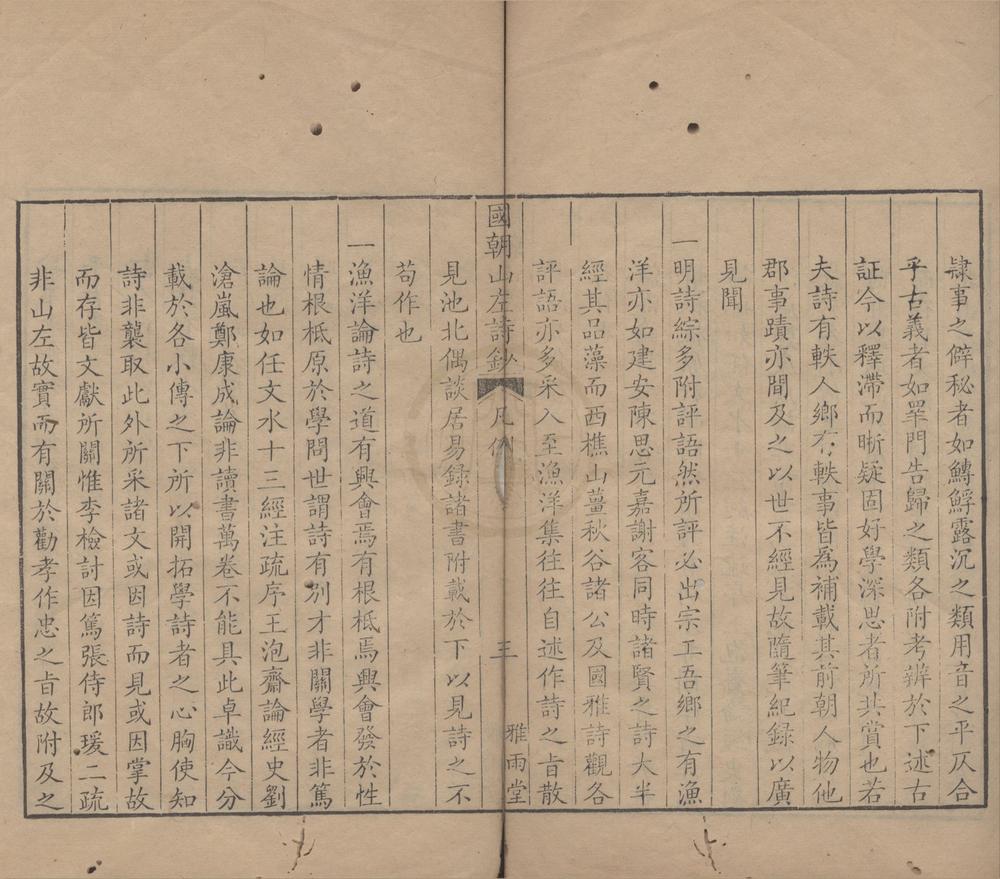 肄事之僻秘者如鱄鯚露沉之類用音之平仄合
乎古義者如睪門告歸之類各附考辨於下述古
証今以釋滯而晰疑固好學深思者所共賞也若
夫詩有軼人鄉有軼事皆為補載其前朝人物他
郡事蹟亦間及之以世不經見故隨筆紀錄以廣
見聞
一明詩綜多附評語然所評必出宗工吾鄉之有漁
洋亦如建安陳思元嘉謝客同時諸賢之詩大半
經其品藻而西樵山薑秋谷諸公及國雅詩觀各
評語亦多采入至漁洋集往往自述作詩之旨散
國朝山左詩鈔 凡例 三 雅雨堂
見池北偶談居易録諸書附載於下以見詩之不
苟作也
一漁洋論詩之道有興會焉有根柢焉興會發於性
情根柢原於學問世謂詩有別才非關學者非篤
論也如任文水十三經注疏序王泡齋論經史劉
滄嵐鄭康成論非讀書萬卷不能具此卓識今分
載於各小傳之下所以開拓學詩者之心胸使知
詩非襲取此外所采諸文或因詩而見或因掌故
而存皆文獻所關惟李檢討因篤張侍郎瑗二疏
非山左故實而有關於勸孝作忠之旨故附及之